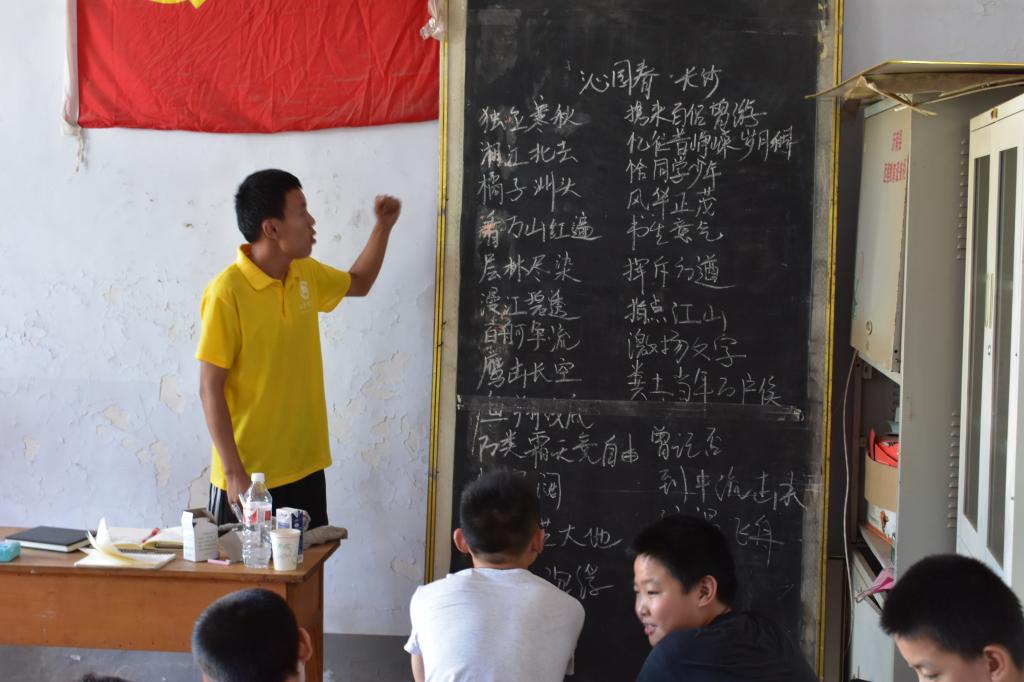 沁园春·长沙
独立寒秋
湘江北去
橘子洲头
看万山红遍
层林尽染
漫江碧透
百舸争流
鹰击长空
鱼翔浅底
万类霜天竞自由
廓
大地
沉浮
携来百侣曾游
忆往昔峥嵘岁月稠
恰同学少年
风华正茂
书生意气
挥斥方遒
指点江山
激扬文字
粪土当年万户侯
曾记否
到中流击水
飞舟